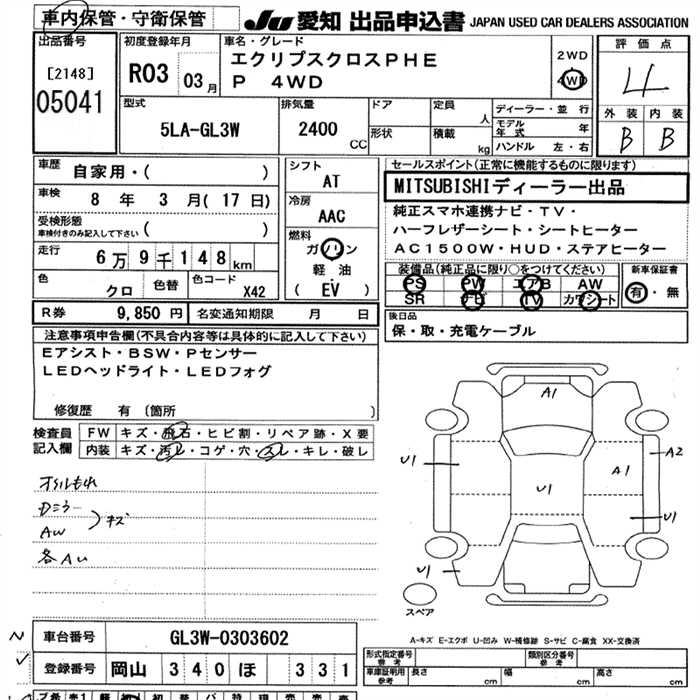 車内保管・守衛保管
JU 愛知 出品申込書 JAPAN USED CAR DEALERS ASSOCIATION
出品番号
[2148]
05041
初度登録年月
R03 03月
車名・グレード
エクリプスクロスPHE
P 4WD
2WD
4WD
評価点
4
外装 内装
B B
型式
5LA-GL3W
排気量
2400 CC
ドア
形状
定員 人
積載 kg
ディーラー・並行
モデル年式 年
ハンドル 左・右
車歴 自家用・( )
車検 8年 3月(17日)
受検形態
車検付きのみ記入して下さい ( )
走行 6万9千148km
色 クロ
色替
色コード X42
シフト
AT
冷房
AAC
燃料
ガソリン
軽油
( EV )
セールスポイント(正常に機能するものに限ります)
MITSUBISHIディーラー出品
純正スマホ連携ナビ・TV・
ハーフレザーシート・シートヒーター
AC1500W・HUD・ステアヒーター
装備品(純正品に限り○をつけてください)
PS PW エアB AW
SR ナビ TV カワシート
新車保証書
有・無
R券 9,850円 名変通知期限 月 日
後日品
保・取・充電ケーブル
注意事項申告欄(不具合内容等は具体的に記入して下さい)
Eアシスト・BSW・Pセンサー
LEDヘッドライト・LEDフォグ
修復歴 有 〔箇所 〕
検査員記入欄
FW キズ・飛石・ヒビ割・リペア跡・X要
内装 キズ・汚レ・コゲ・穴・スレ・キレ・破レ
Dミラー
AW
キズ
各AU
A1
A2
U1
U1
A1
U1
U1
スペア
A-キズ E-エクボ U-凹み W-補修跡 S-サビ C-腐食 XX-交換済
車台番号 GL3W-0303602
登録番号 岡山 340 ほ 331
形式指定番号
参考
類別区分番号
参考
車庫証明用
参考
長さ cm 幅 cm 高さ cm